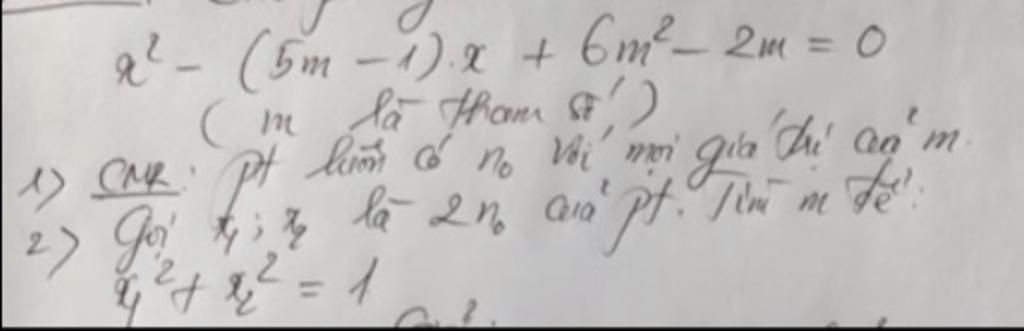 x² - (5m - 1).x + 6m² - 2m = 0
( m là tham số )
1) CMR: pt luôn có no với mọi giá trị của m.
2) Gọi x₁; x₂ là 2 no của pt. Tìm m để:
x₁² + x₂² = 1